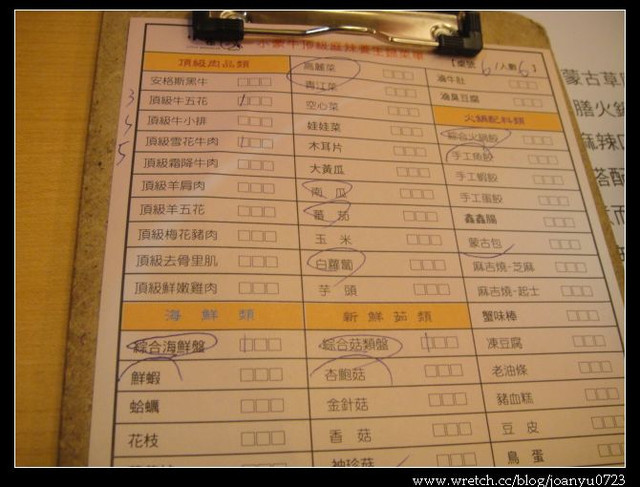 小蒙牛頂級麻辣養生鍋菜單
【桌號 6 /人數 6 】
頂級肉品類
安格斯黑牛
頂級牛五花
頂級牛小排
頂級雪花牛肉
頂級霜降牛肉
頂級羊肩肉
頂級羊五花
頂級梅花豬肉
頂級去骨里肌
頂級鮮嫩雞肉
海鮮類
綜合海鮮盤
鮮蝦
蛤蠣
花枝
高麗菜
青江菜
空心菜
娃娃菜
木耳片
大黃瓜
南瓜
蕃茄
玉米
白蘿蔔
芋頭
新鮮菇類
綜合菇類盤
杏鮑菇
金針菇
香菇
袖珍菇
滷牛肚
滷臭豆腐
火鍋配料類
綜合火鍋餃
手工魚餃
手工蝦餃
手工蛋餃
鑫鑫腸
蒙古包
麻吉燒-芝麻
麻吉燒-起士
蟹味棒
凍豆腐
老油條
豬血糕
豆皮
鳥蛋
3
4
5
蒙古草
膳火鍋
麻辣口
搭配
www.wretch.cc/blog/joanyu0723